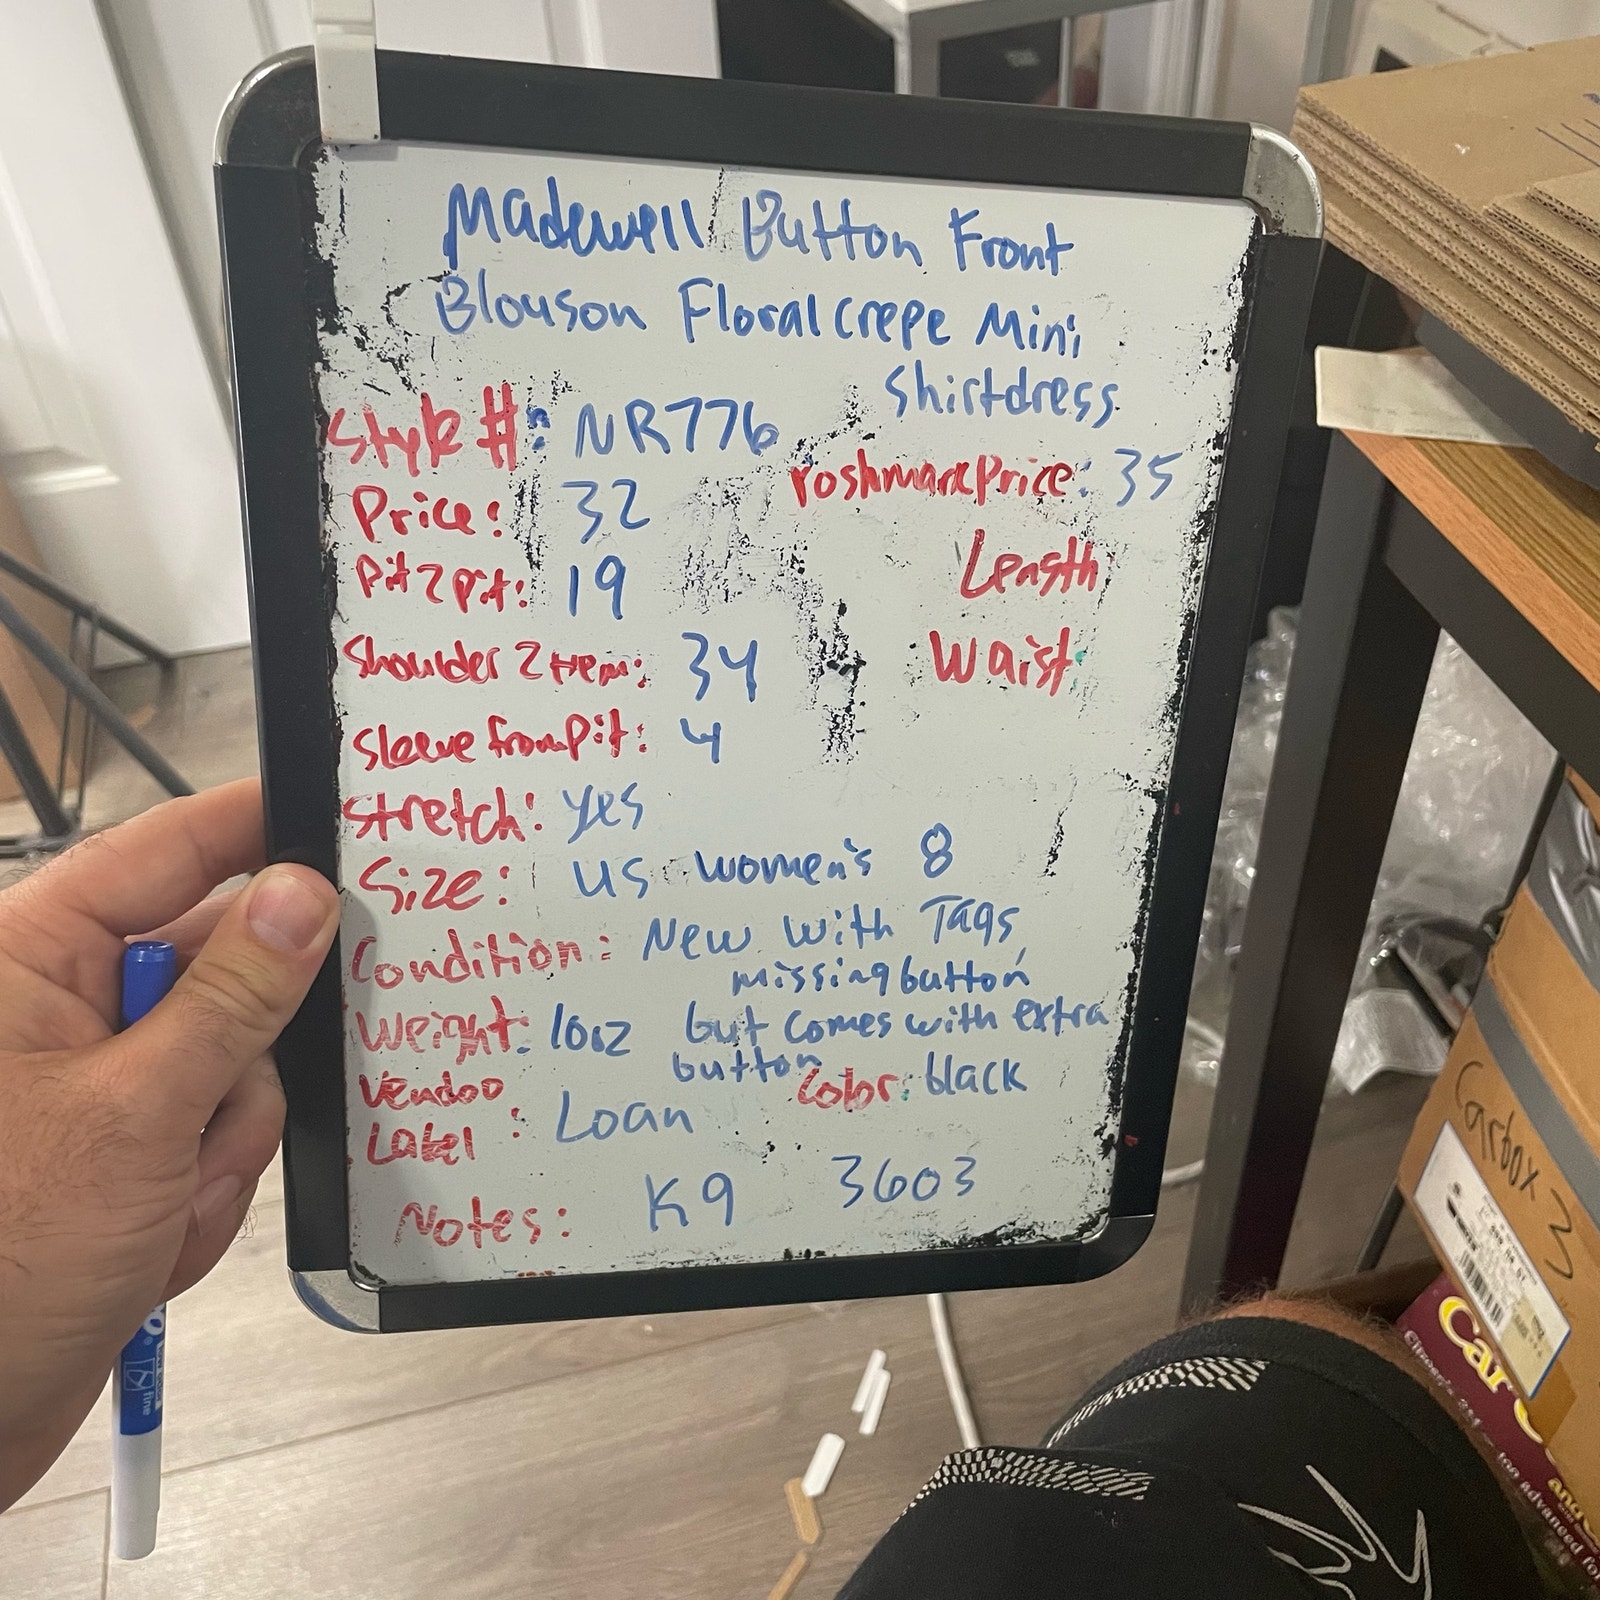 Madewell Button Front
Blouson Floral crepe Mini
Shirtdress
Style #: NR776
Poshmark Price: 35
Price: 32
Length:
Pit 2 pit: 19
Waist:
Shoulder 2 Hem: 34
Sleeve from Pit: 4
Stretch: yes
Size: US women's 8
Condition: New With Tags,
missing button
Weight: 10oz but comes with extra
button
Color: black
Vendoo
Label : Loan
Notes: K9 3603
Carfox 3
Car
fine